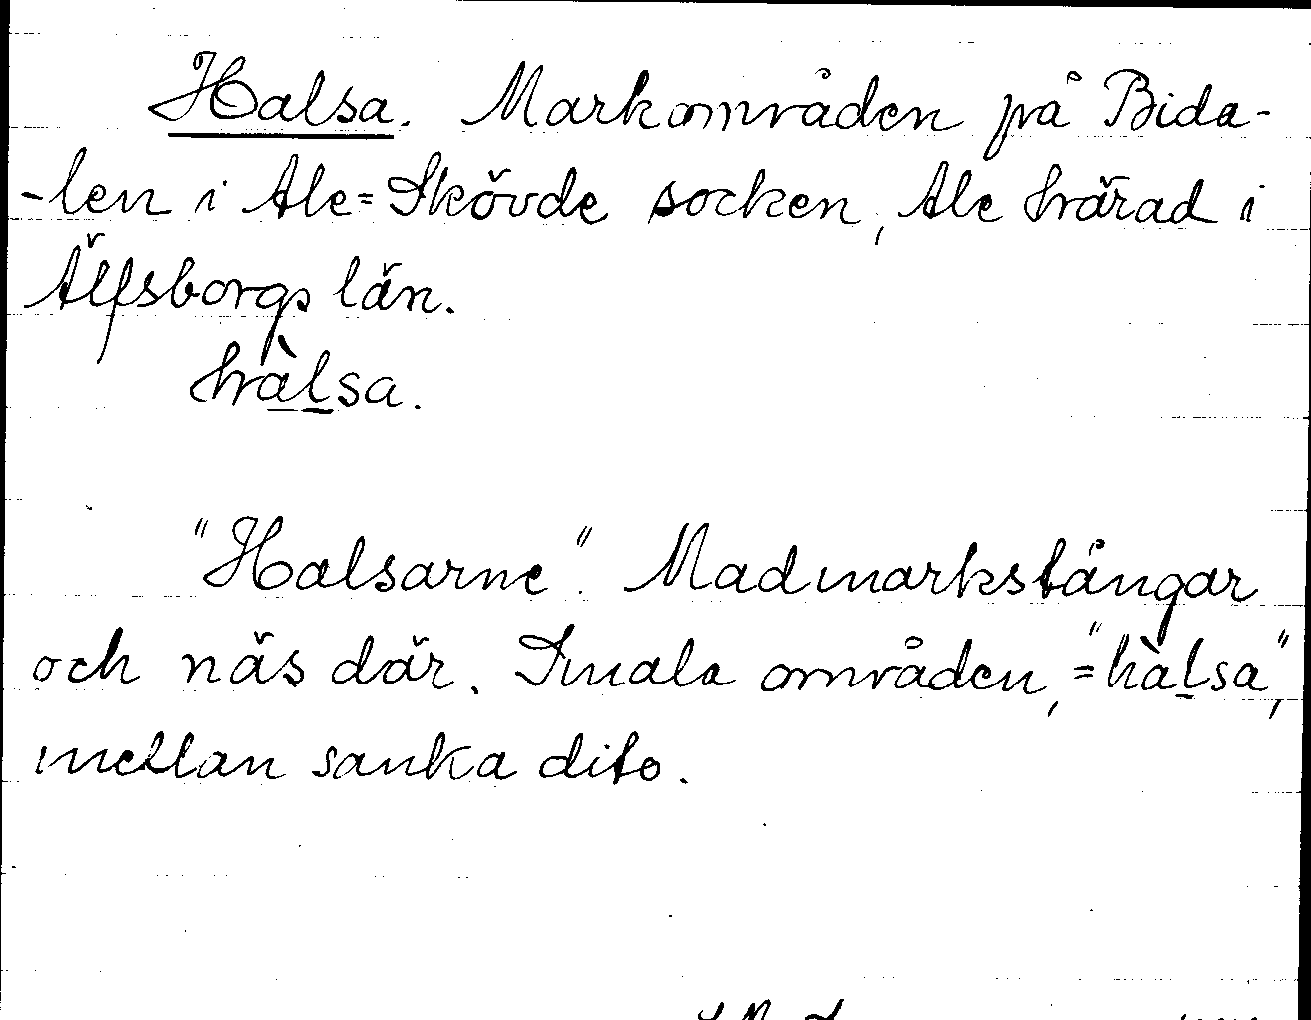 Halsa. Markområden på Bida-
-len i Ale-Skövde socken, Ale härad i
Älfsborgs län.
hàlsa.
"Halsarne". Madmarkstångar
och näs där. Smala områden, = "hàlsa",
mellan sanka dito.